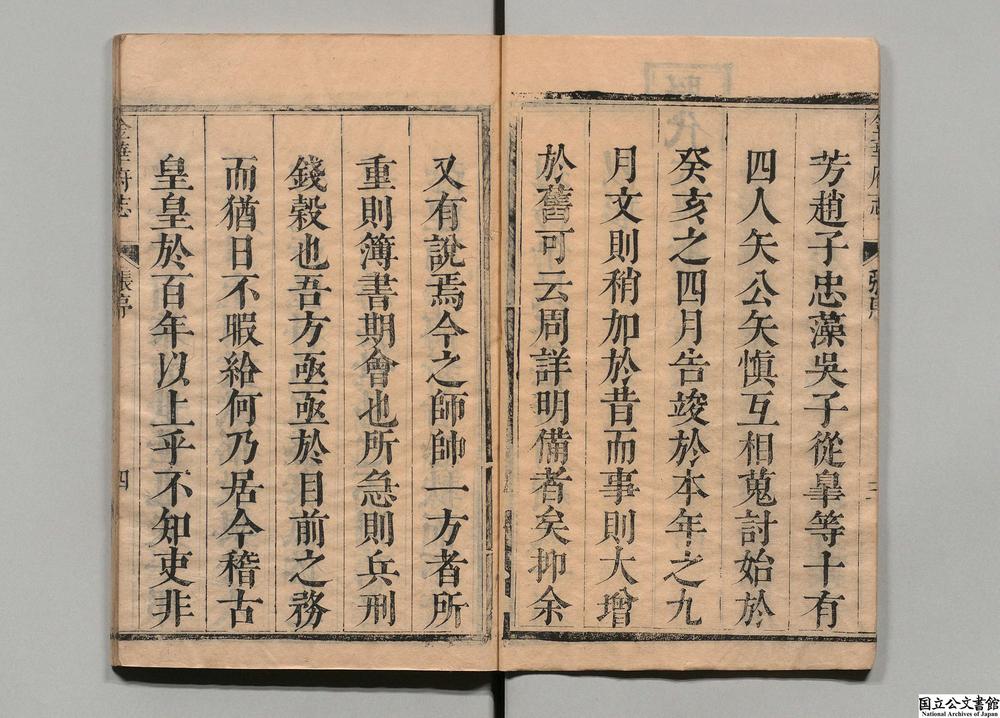 芳趙子忠藻吳子從臯等十有
四人矢公矢慎互相蒐討始於
癸亥之四月告竣於本年之九
月文則稍加於昔而事則大增
於舊可云周詳明備者矣抑余
又有說焉今之師帥一方者所
重則簿書期會也所急則兵刑
錢穀也吾方亟亟於目前之務
而猶日不暇給何乃居今稽古
皇皇於百年以上乎不知吏非
金華府志 張序 四
国立公文書館
National Archives of Japan